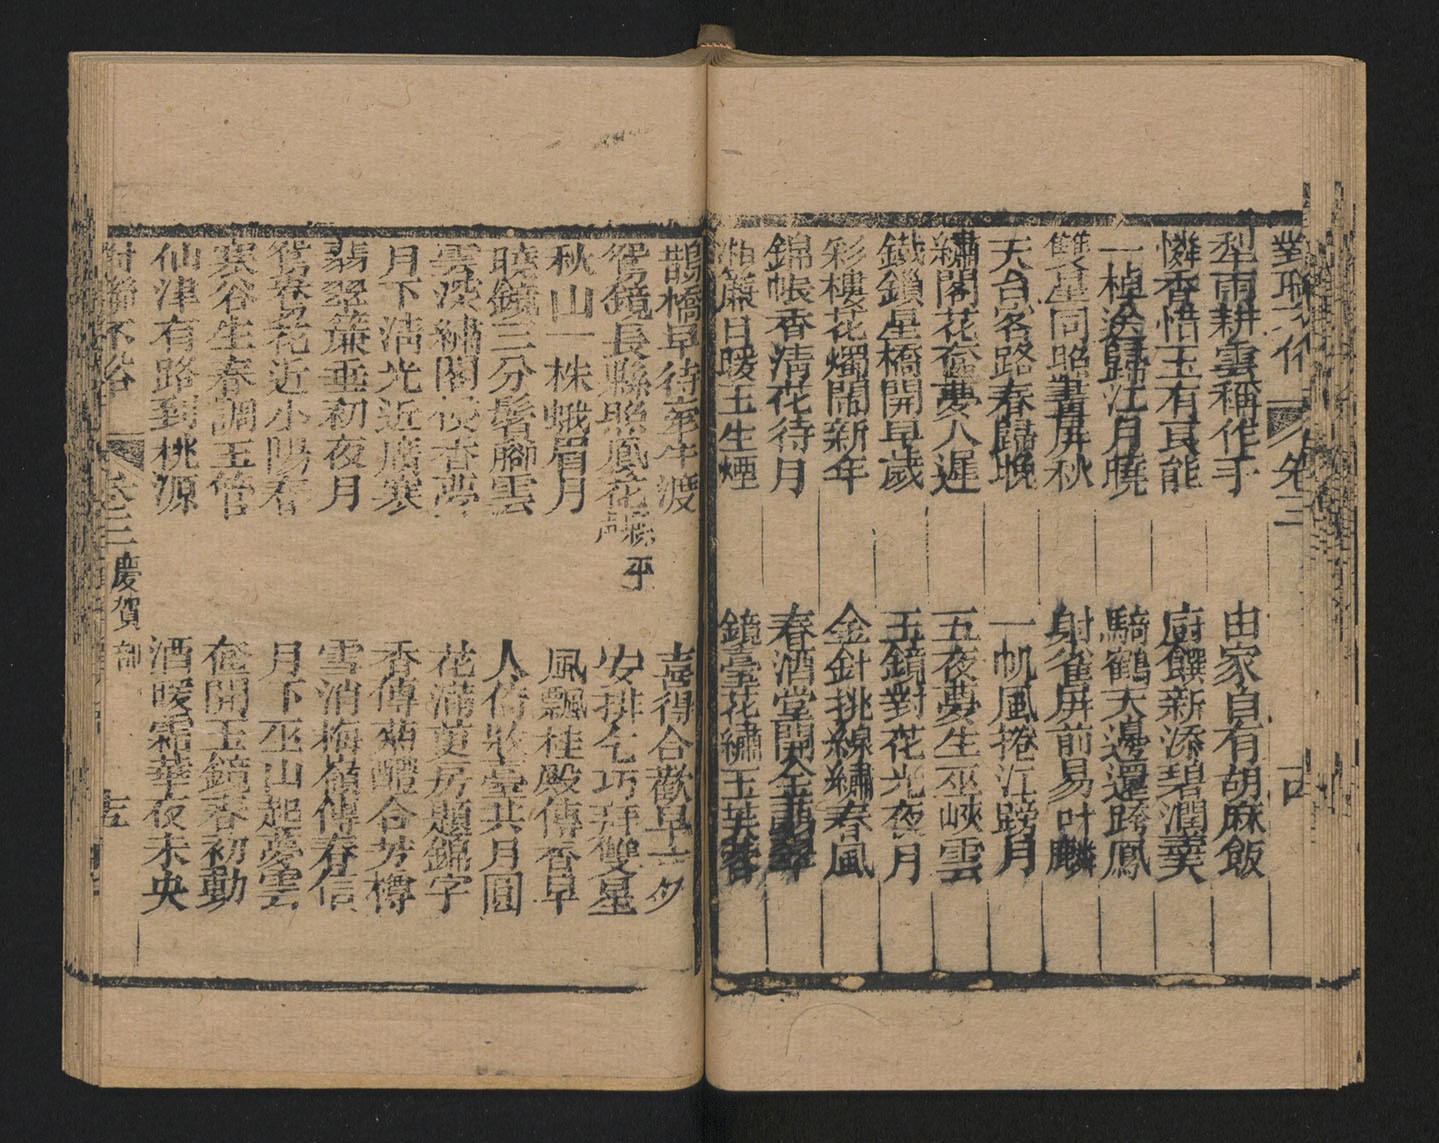 對聯不俗 卷三 古
犁雨耕雲稱作手 由家自有胡麻飯
憐香惜玉有良能 廚饌新添碧澗羹
一棹送歸江月曉 騎鶴天邊還跨鳳
雙星同照畫屏秋 射雀屏前易叶麟
天台客路春歸晚 一帆風捲江蹄月
繡閣花奩夢人遲 五夜夢生巫峽雲
鐵鎖星橋開早歲 玉鏡對花光夜月
彩樓花燭鬧新年 金針挑線繡春風
錦帳香清花待月 春酒堂開金翡翠
湘簾日暖玉生煙 鏡臺花繡玉芙蓉
鵲橋早待牽牛渡 喜得合歡早一夕
鸞鏡長懸照鳳花 安排乞巧拜雙星
縣 平
秋山一株蛾眉月 風飄桂殿傳香早
曉鏡三分鬢腳雲 人倚妝臺共月圓
雲深繡閣 香夢 花滿萸房題錦字
月下清光近廣寒 香傳菊醴合芳樽
翡翠簾垂初夜月 雪消梅嶺傳春信
鴛 花近小陽春 月下巫山起夢雲
寒谷生春調玉管 奩開玉鏡春初動
仙津有路到桃源 酒暖霜華夜未央
對聯不俗 卷三 慶賀部